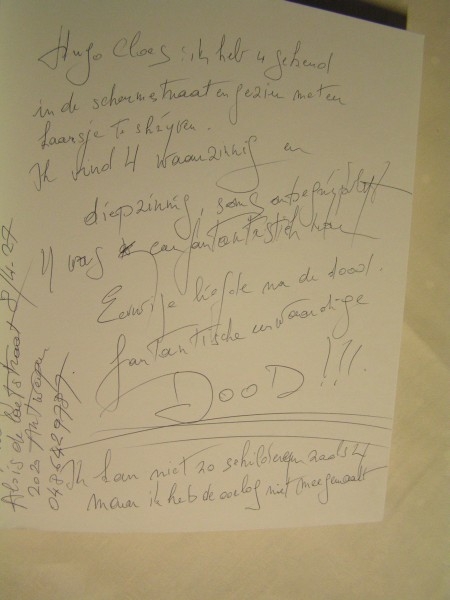 Hugo Claes : ik heb u gekend
in de schermestraat en gezien met een
kaarsje te shrijven.
Ik vind U waanzinnig en
diepzinnig, soms onbegrijplijk
U was een fantastisch man
Eeuwige liefde na de dood.
fantantische en waardige
DOOD !!!.
Ik kan niet zo schilderen zoals U
maar ik heb de oorlog niet meegemaakt
Alois de laetstraat 8/4.27
2020 Antwerpen